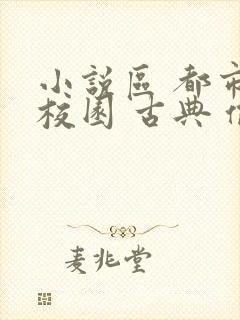 小說區 都市
校園 古典
麦兆堂